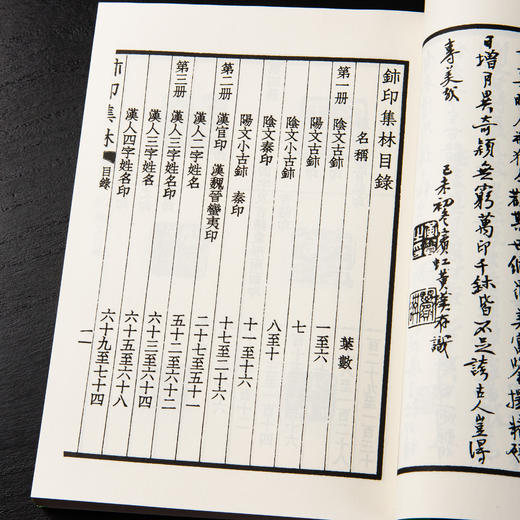 日增月異奇穎無窮萬印千鉥皆不足誇古人豈得
專美哉
己未初冬濱虹黃樸存識
鉥印集林目錄
名稱 葉數
第一册 陰文古鉥 一至六
陽文古鉥 七
陰文秦印 八至十
陽文小古鉥 秦印 十一至十六
第二册 漢官印 漢魏晉蠻夷印 十七至二十六
漢人二字姓名 二十七至五十一
第三册 漢人三字姓名印 五十二至六十二
漢人三字姓名 六十三至六十四
漢人四字姓名印 六十五至六十八
六十九至七十四
鉥印集林 目錄 一